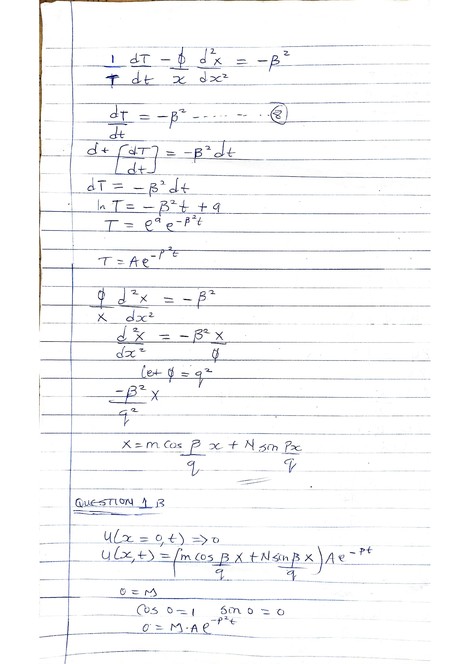 1/T dT/dt - φ/x d²x/dx² = -β²
dT/dt = -β² -------- ⑧
dt [dT/dt] = -β² dt
dT = -β² dt
ln T = -β² t + a
T = e^a e^-β²t
T = A e^-β²t
φ/x d²x/dx² = -β²
d²x/dx² = -β² x/φ
let φ = q²
-β²/q² x
x = m cos β/q x + N sin βx/q
QUESTION 1 B
U(x = 0, t) => 0
U(x, t) = (m cos β/q x + N sin β/q x) A e^-βt
0 = M
cos 0 = 1 sin 0 = 0
0 = M·A e^-β²t